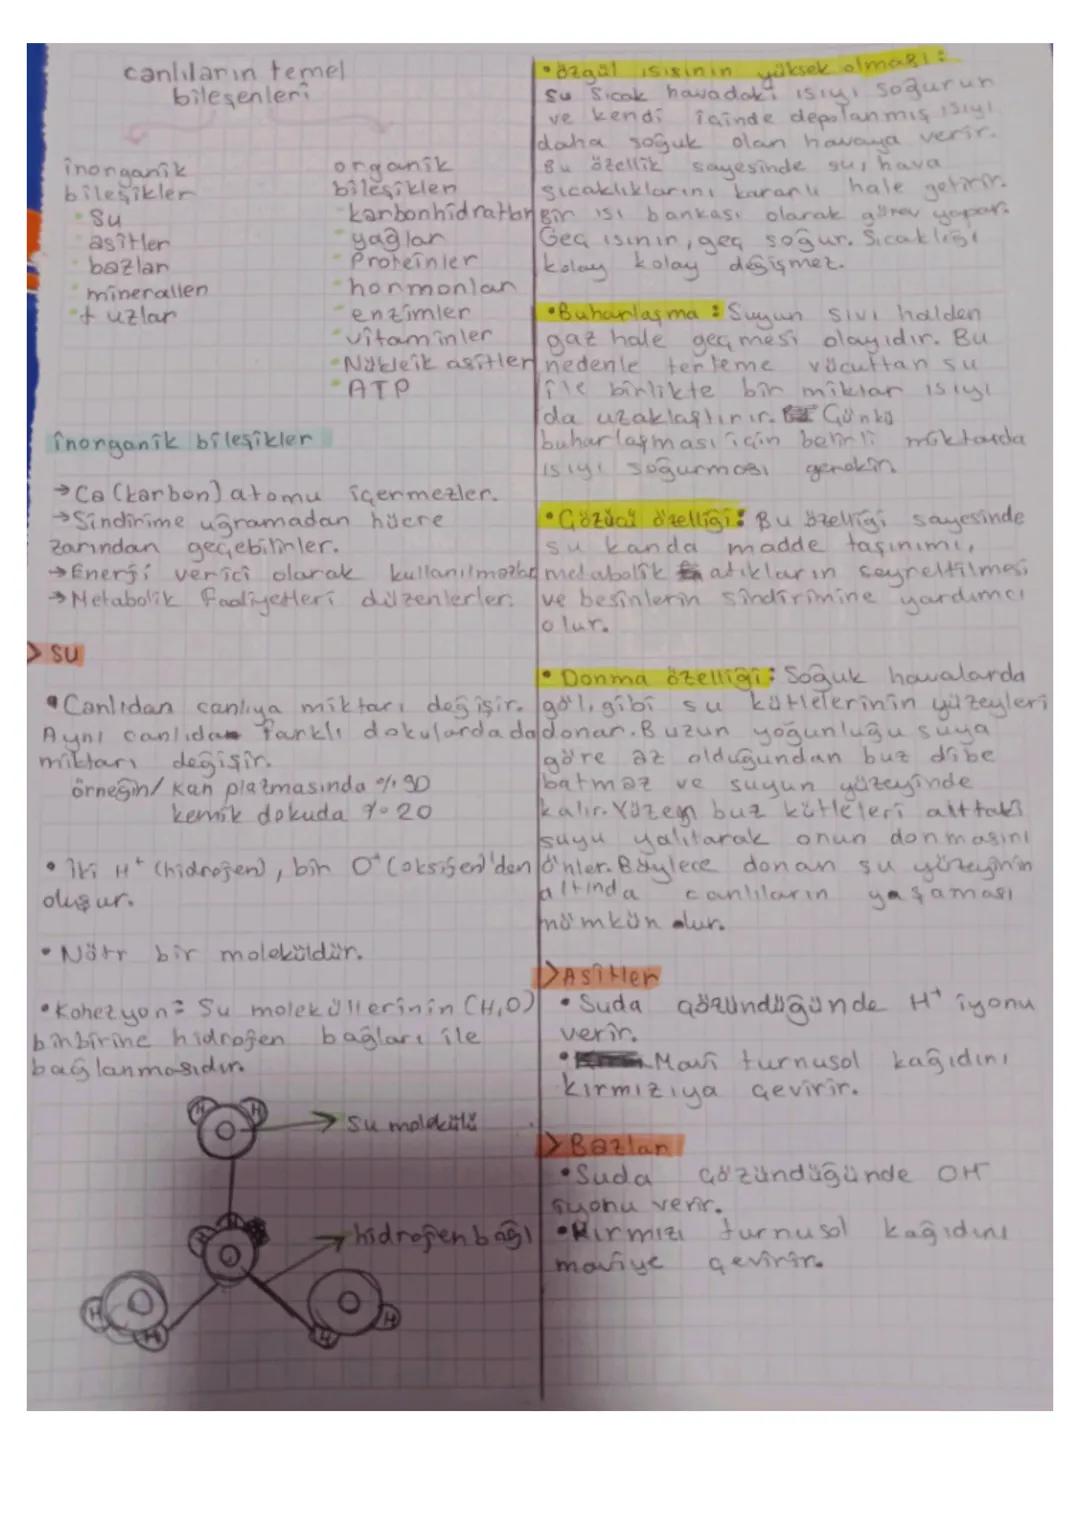 canlıların temel
bileşenleri
inorganik
bileşikler
• Su
• asitler
• bazlar
• mineraller
• tuzlar
organik
bileşikler
• karbonhidratlar
• yağlar
• Proteinler
• hormonlar
• enzimler
• vitaminler
• Nükleik asitler
• ATP
inorganik bileşikler
→ Ca (karbon) atomu içermezler.
→ Sindirime uğramadan hücre
zarından geçebilirler.
→ Enerji verici olarak kullanılmazlar
→ Metabolik faaliyetleri düzenlerler.
> su
• Canlıdan canlıya miktarı değişir.
Aynı canlıda farklı dokularda da
miktarı değişir.
örneğin/ kan plazmasında %90
kemik dokuda %20
• İki H⁺ (hidrojen), bir O⁺ (oksijen)'den
oluşur.
• Nötr bir moleküldür.
• Kohezyon: Su moleküllerinin (H₂O)
birbirine hidrojen bağları ile
bağlanmasıdır.
H
H
O
→ su molekülü
H
H
O
→ hidrojen bağı
O
H
H
O
H
H
• özgül ısısının yüksek olması:
Su sıcak havadaki ısıyı soğurur
ve kendi içinde depolanmış ısıyı
daha soğuk olan havaya verir.
Bu özellik sayesinde su, hava
sıcaklıklarını kararlı hale getirir.
Bir ısı bankası olarak görev yapar.
Geç ısınır, geç soğur. Sıcaklığı
kolay kolay değişmez.
• Buharlaşma: Suyun sıvı halden
gaz hale geçmesi olayıdır. Bu
nedenle terleme vücuttan su
ile birlikte bir miktar ısıyı
da uzaklaştırır. Çünkü
buharlaşması için belirli miktarda
ısıyı soğurması gerekir.
• Çözücü özelliği: Bu özelliği sayesinde
su kanda madde taşınımı,
metabolik atıkların seyreltilmesi
ve besinlerin sindirimine yardımcı
olur.
• Donma özelliği: Soğuk havalarda
göl, gibi su kütlelerinin yüzeyleri
donar. Buzun yoğunluğu suya
göre az olduğundan buz dibe
batmaz ve suyun yüzeyinde
kalır. Yüzen buz kütleleri alttaki
suyu yalıtarak onun donmasını
önler. Böylece donan su yüzeyinin
altında canlıların yaşaması
mümkün olur.
> Asitler
• Suda çözündüğünde H⁺ iyonu
verir.
• Mavi turnusol kağıdını
kırmızıya çevirir.
> Bazlar
• Suda çözündüğünde OH⁻
iyonu verir.
• Kırmızı turnusol kağıdını
maviye çevirir.